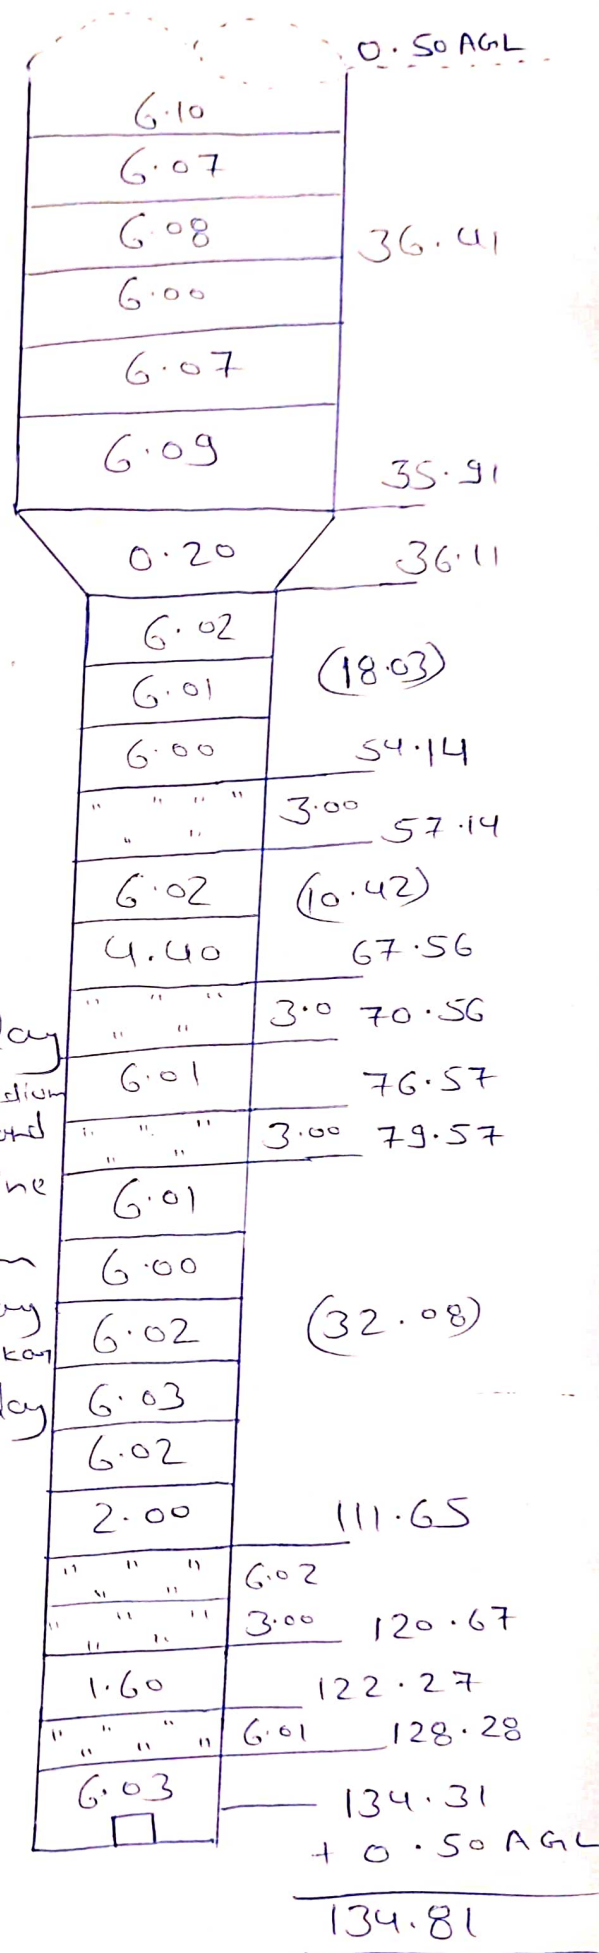 0.50 AGL
6.10
6.07
6.08 36.41
6.00
6.07
6.09
35.91
0.20 36.11
6.02
(18.03)
6.01
6.00 54.14
" " " " 3.00
" " 57.14
6.02 (10.42)
4.40 67.56
" " " 3.0 70.56
" "
6.01 76.57
" " " 3.00 79.57
" "
6.01
6.00
6.02 (32.08)
6.03
6.02
2.00 111.65
" " " 6.02
" "
" " " 3.00 120.67
" "
1.60 122.27
" " " 6.01 128.28
" " "
6.03 134.31
+ 0.50 AGL
134.81